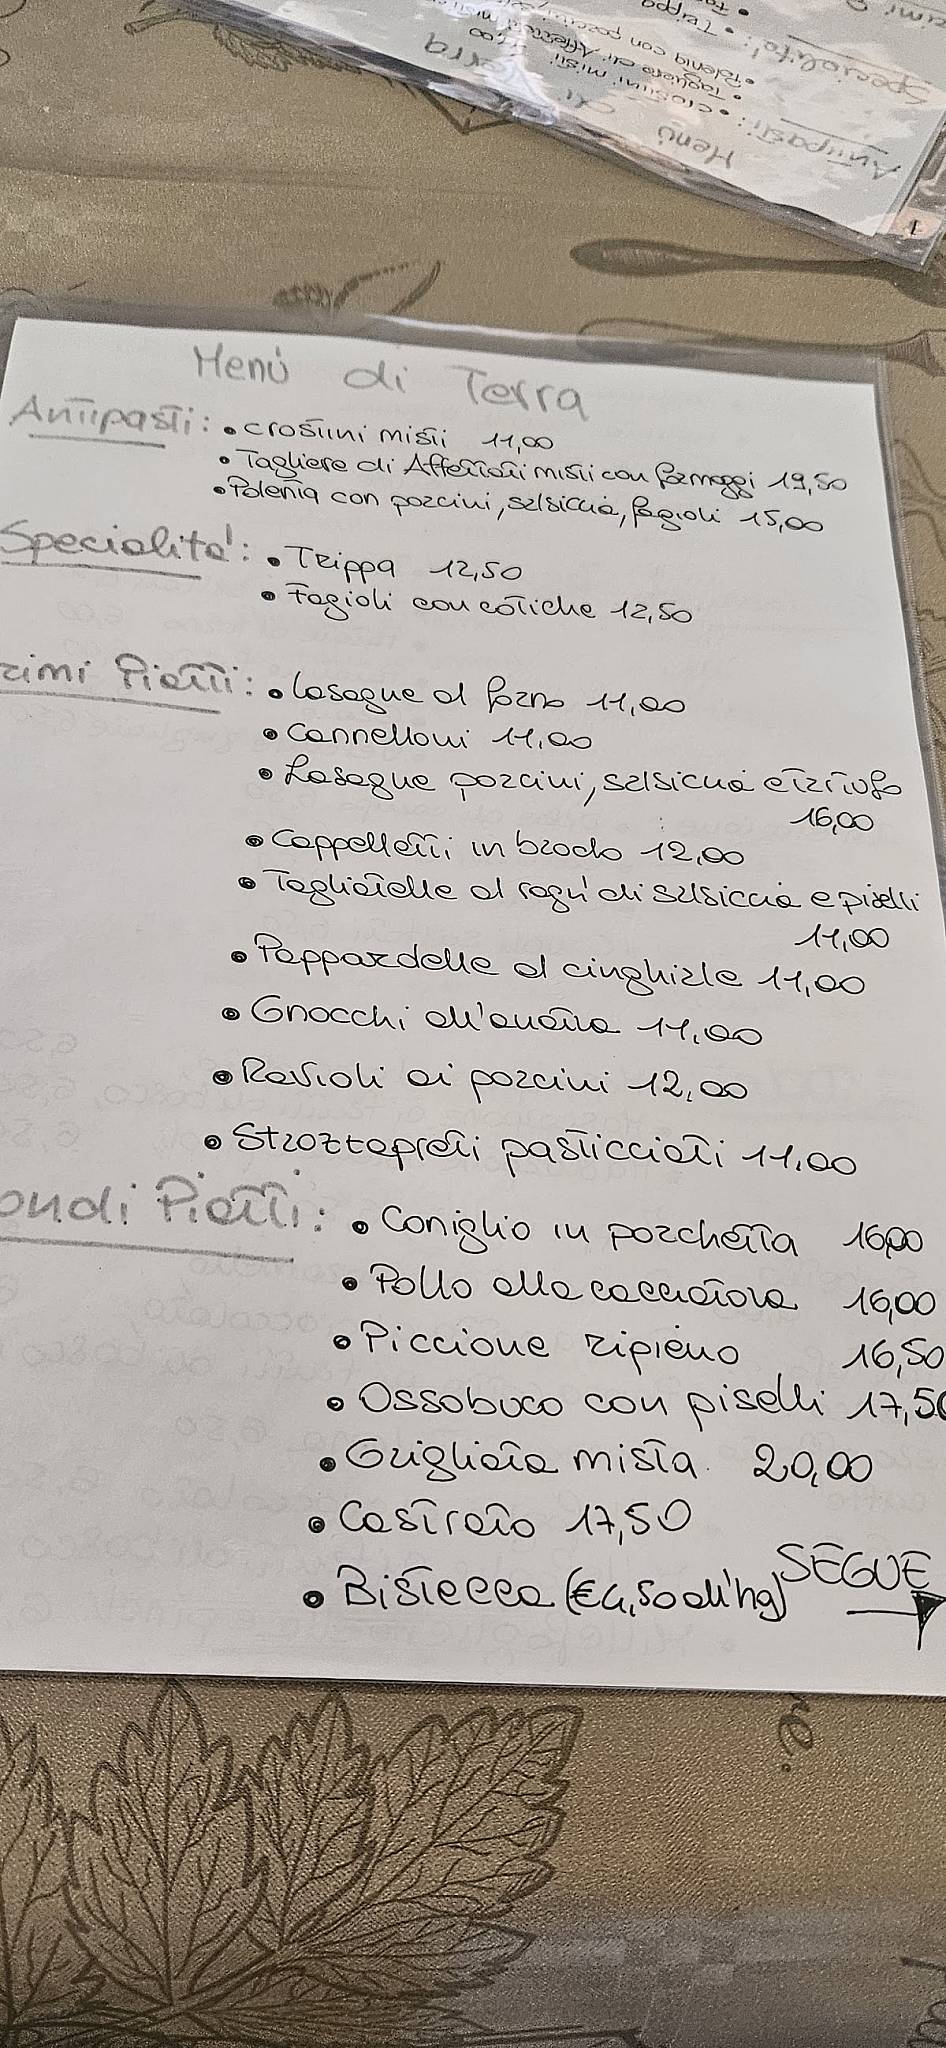 Menù di Terra
Antipasti: • crostini misti 11,00
• Tagliere di Affettati misti con formaggi 19,50
• Polenta con porcini, salsiccia, fagioli 15,00
Specialita': • Trippa 12,50
• Fagioli con cotiche 12,50
rimi Piatti: • Lasagne al forno 11,00
• Cannelloni 11,00
• Lasagne porcini, salsiccia e tartufo
16,00
• Cappelletti in brodo 12,00
• Tagliatelle al ragu' di salsiccia e piselli
11,00
• Pappardelle al cinghiale 11,00
• Gnocchi all'anatra 11,00
• Ravioli ai porcini 12,00
• Strozzapreti pasticciati 11,00
ondi Piatti: • Coniglio in porchetta 16,00
• Pollo alla cacciatora 16,00
• Piccione ripieno 16,50
• Ossobuco con piselli 17,50
• Grigliata mista 20,00
• Castrato 17,50
• Bistecca (€4,50 all'hg) SEGUE
1
Antipasti: • crostini misti
Menù
Specialita':